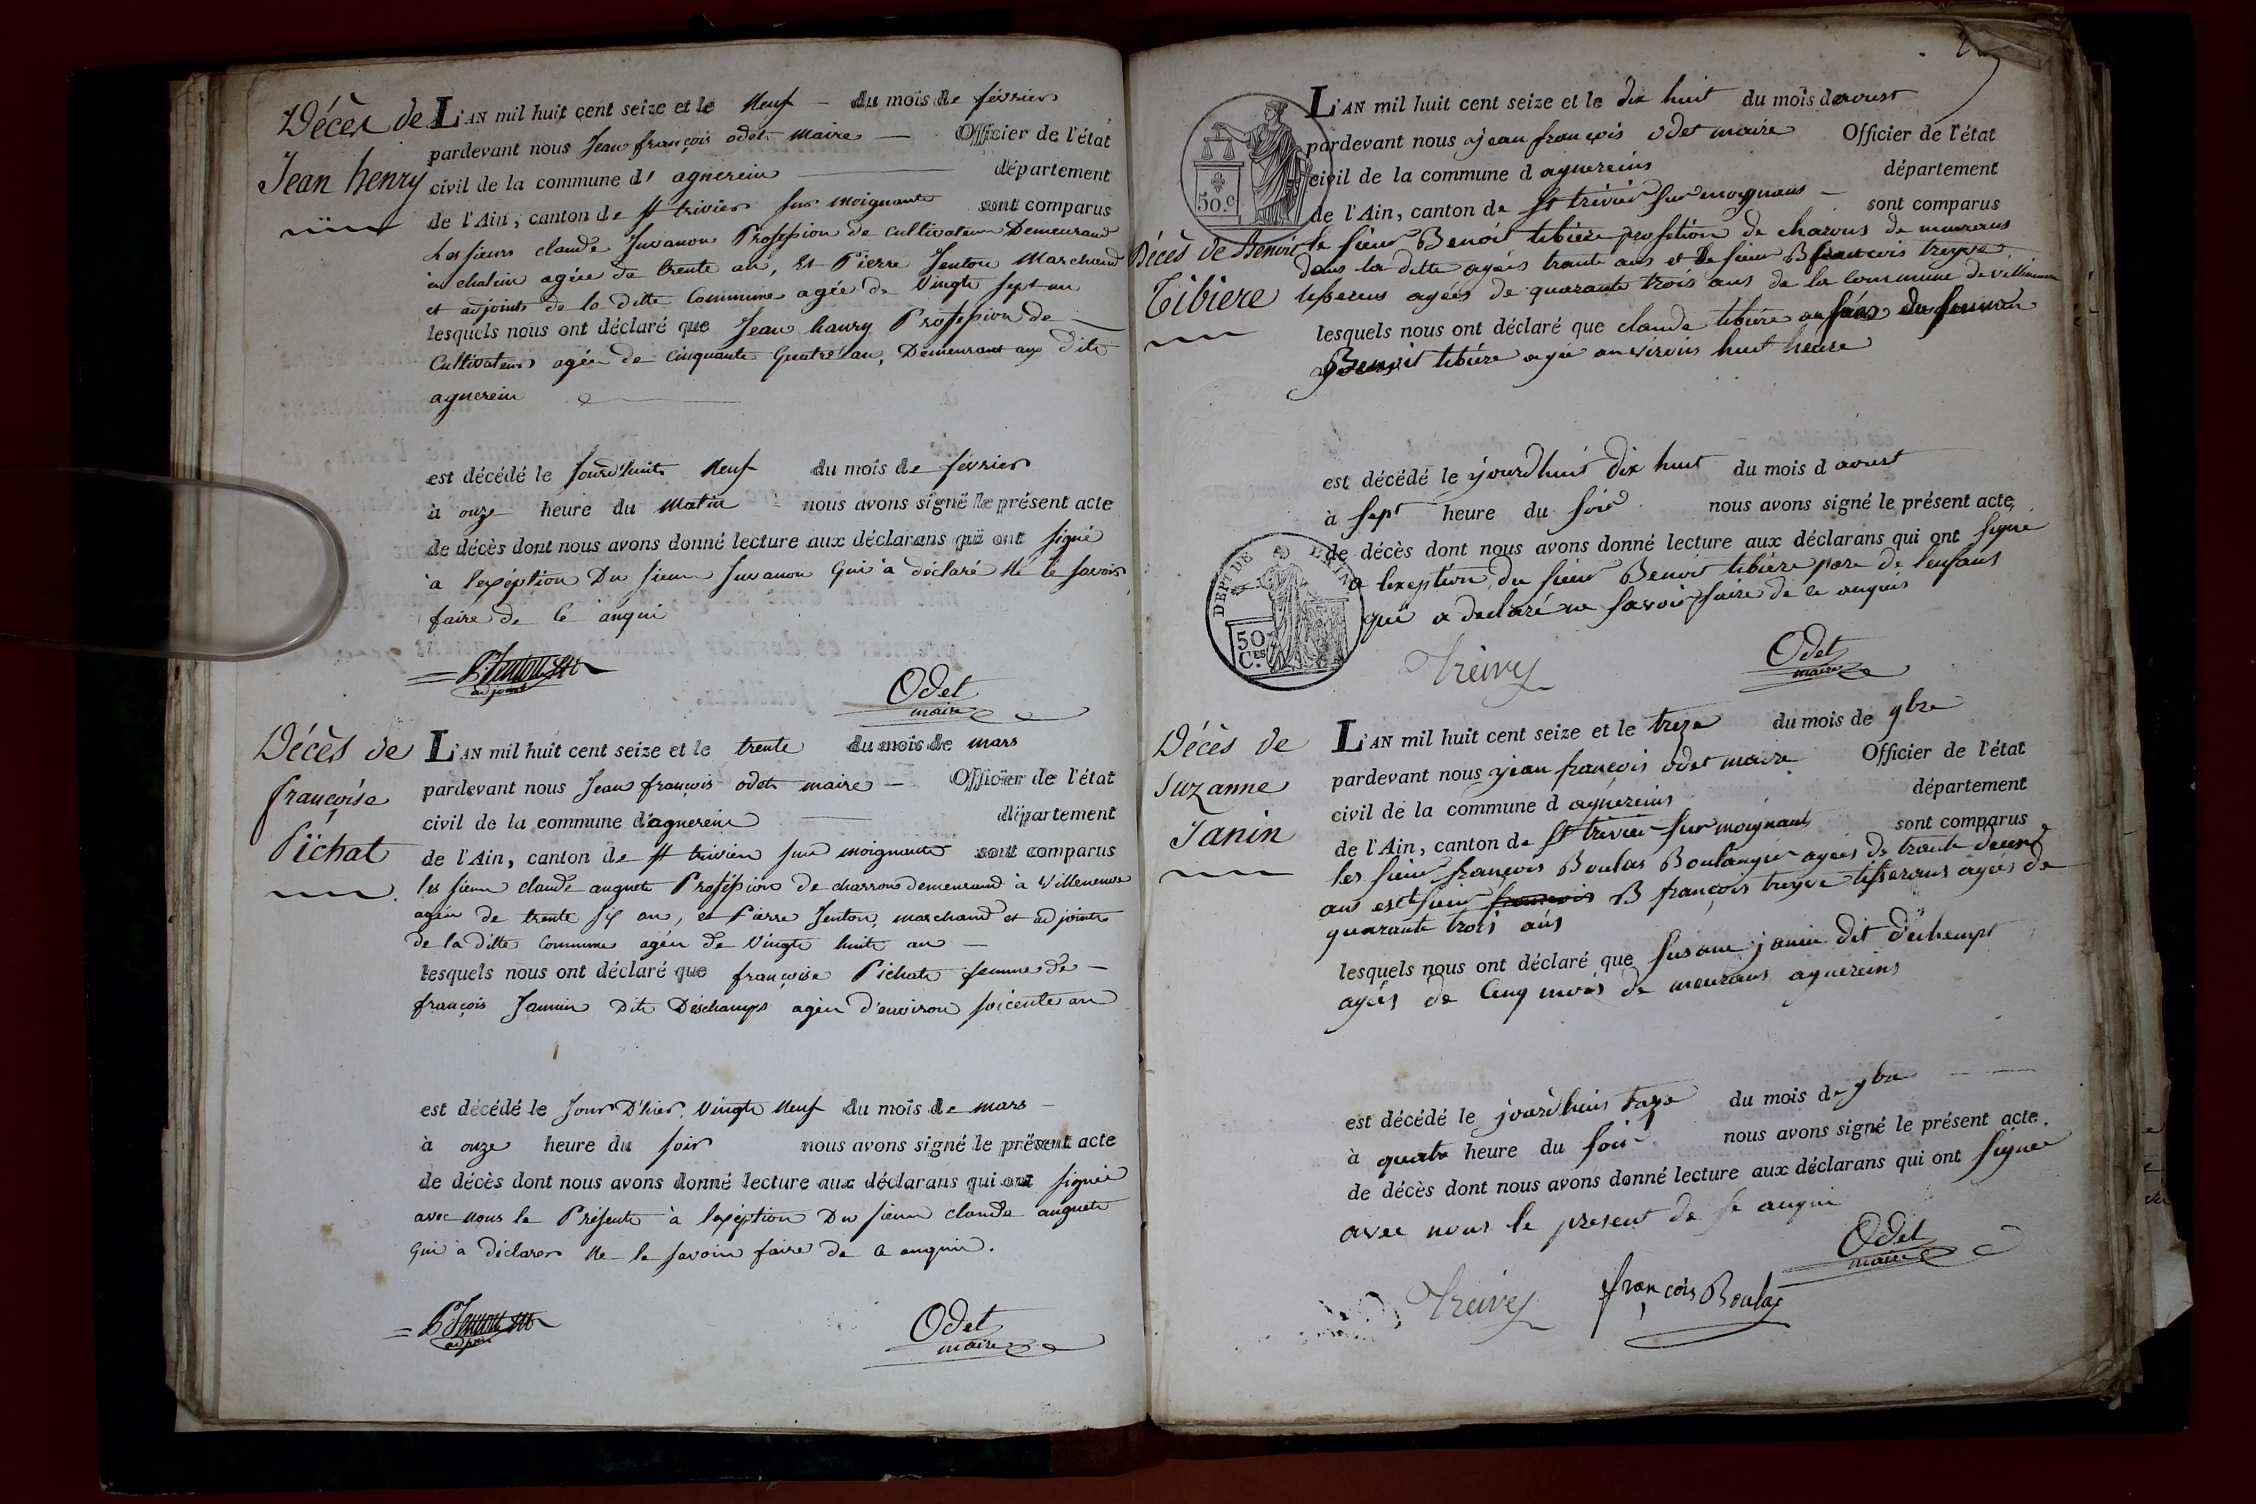 Décès de
Jean henry
L'AN mil huit cent seize et le Neuf du mois de février
pardevant nous Jean françois odet maire Officier de l'état
civil de la commune d' agnerein département
de l'Ain, canton de st trivier sur moignant sont comparus
Les sieurs claude Juvanon Profession de cultivateur Demeurand
à chalein agée de trente an, Et Pierre Jenton Marchand
et adjoint de la ditte Commune agée de Vingt sept an
lesquels nous ont déclaré que Jean hanry Profession de
Cultivateur agée de cinquante Quatre an, Demeurant aux dit
agnerein
est décédé le Jourd'huit Neuf du mois de février
à onze heure du Matin nous avons signé le présent acte
de décès dont nous avons donné lecture aux déclarans qui ont signé
à l'exéption Du sieur Juvanon Qui à déclaré Né le savoir
faire de ce anqui
P. Jenton
adjoint
Odet
maire
Décès de
françoise
Pichat
L'AN mil huit cent seize et le trente du mois de mars
pardevant nous Jean françois odet maire Officier de l'état
civil de la commune d'agnerein département
de l'Ain, canton de st trivier sur moignant sont comparus
les sieur claude anguet Proféssion de charron demeurand à Villeneuve
agée de trente six an, et Pierre Jenton, marchand et adjoint
de la ditte Commune agée de Vingt huit an
lesquels nous ont déclaré que françoise Pichat femme de
françois Jannin Dit Deschamps agée d'environ soicente an
est décédé le Jour D'hier, Vingt Neuf du mois de mars
à onze heure du soir nous avons signé le présent acte
de décès dont nous avons donné lecture aux déclarans qui ont signée
avec nous le Présent à l'exéption Du sieur claude anguet
Qui à déclarer Ne le savoir faire de ce anquin.
P. Jenton
adjoint
Odet
maire
50.c
L'AN mil huit cent seize et le dix huit du mois d aoust
pardevant nous jean françois odet maire Officier de l'état
civil de la commune d agnereins département
de l'Ain, canton de St trivier sur moignans sont comparus
Décès de Benoit
Tibiere
le sieur Benoit tibiere profition de charons de meurans
dans la ditte agées trante ans et le sieur B françois treyve
tisserens agées de quarante trois ans de la commune de villeneuve
lesquels nous ont déclaré que claude tibiére
Benoit tibiére agée anvirons huit heure
est décédé le jourdhuis dix huit du mois d aoust
à sept heure du soir nous avons signé le présent acte
de décès dont nous avons donné lecture aux déclarans qui ont signé
a lexeption du sieur Benoit tibiére pere de lenfans
qui a declaré ne savoir faire de ce anquis
DEPT DE L'AIN
50
C.ES
Treive
Odet
maire
Décès de
Suzanne
Janin
L'AN mil huit cent seize et le treze du mois de 9bre
pardevant nous jean françois odet maire Officier de l'état
civil de la commune d agnereins département
de l'Ain, canton de St trivier sur moignans sont comparus
les sieur françois Boulas Boulangier agées de trante deux
ans est sieur B françois treyve tisserans agées de
quarante trois ans
lesquels nous ont déclaré que susane janin dit dechempt
agées de Cinq mois de meurans agnereins
est décédé le jourdhuis treze du mois de 9bre
à quatre heure du soir nous avons signé le présent acte.
de décès dont nous avons donné lecture aux déclarans qui ont signée
avec nous le present de se anqui
Treive
françois Boulas
Odet
maire